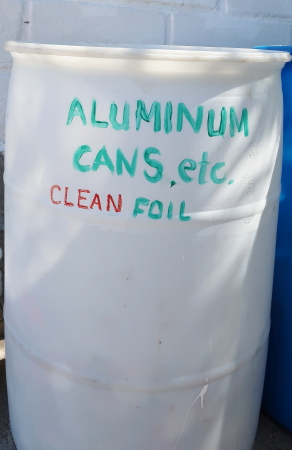 ALUMINUM
CANS, etc.
CLEAN FOIL